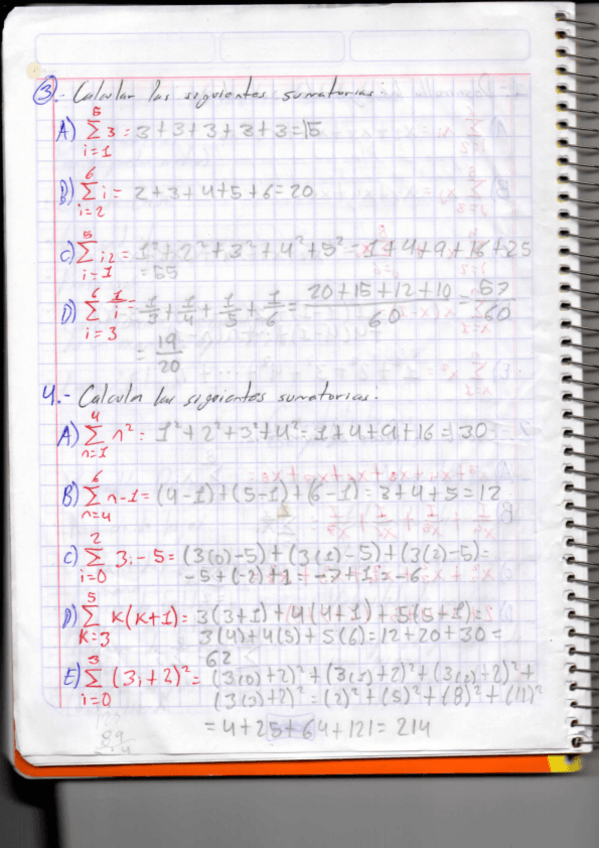 3.- Calcular las siguientes sumatorias:
A) 5 Σ i=1 3 = 3+3+3+3+3=15
B) 6 Σ i=2 i = 2+3+4+5+6=20
C) 5 Σ i=1 i2 = 1²+2²+3²+4²+5² = 1+4+9+16+25
= 55
D) 6 Σ i=3 1/i = 1/3+1/4+1/5+1/6 = 20+15+12+10/60 = 57/60
= 19/20
4.- Calcular las siguientes sumatorias:
A) 4 Σ n=1 n² = 1²+2²+3²+4² = 1+4+9+16 = 30
B) 6 Σ n=4 n-1 = (4-1)+(5-1)+(6-1) = 3+4+5 = 12
C) 2 Σ i=0 3i-5 = (3(0)-5)+(3(1)-5)+(3(2)-5)=
-5+(-2)+1 = -7+1 = -6
D) 5 Σ K=3 K(K+1) = 3(3+1)+4(4+1)+5(5+1)=
3(4)+4(5)+5(6)=12+20+30=
62
E) 3 Σ i=0 (3i+2)² = (3(0)+2)²+(3(1)+2)²+(3(2)+2)²+
(3(3)+2)² = (2)²+(5)²+(8)²+(11)²
= 4+25+64+121 = 214